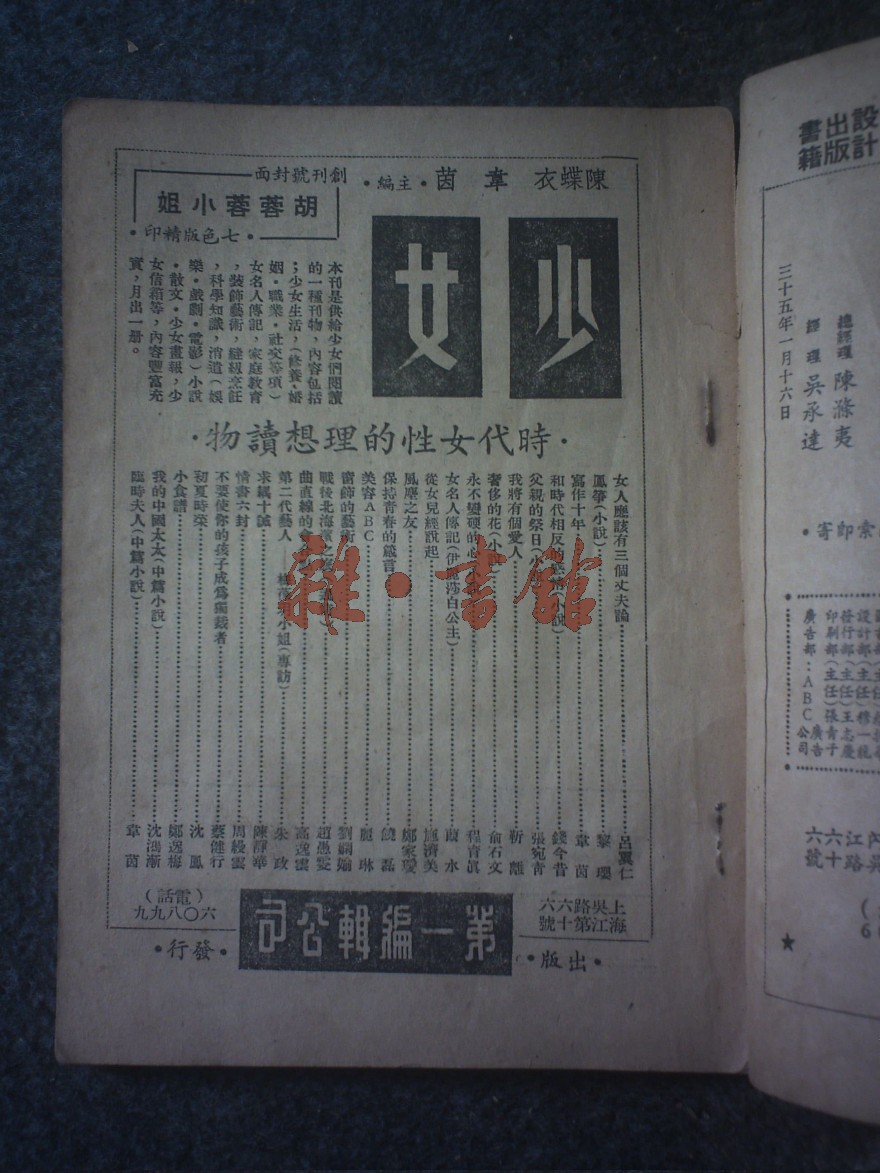 陳蝶衣 韋茵·主編·
創刊號封面
胡蓉蓉小姐
·七色版精印·
少女
本刊是供給少女們閱讀
的一種刊物，內容包括
；少女生活，（修養·婚
姻·職業·社交等項）
女名人傳記，家庭教育
，裝飾藝術，縫紉烹飪
，科學知識，消遣（娛
樂·戲劇·電影）小說
·散文·少女畫報，少
女信箱等，內容豐富充
實，月出一册。
·時代女性的理想讀物·
女人應該有三個丈夫論 呂翼仁
鳳箏（小說） 黎瓔
寫作十年 韋茵
和時代相反的 小說） 錢今昔
父親的祭日（小 張宛青
我將有個愛人 靳離
奢侈的花（小 俞石文
永不變硬的心 程育真
女名人傳記（伊麗莎白公主） 水
從女兒經說起 施濟美
風塵之友 鄭家瑷
保持青春的箴言 饒磊
美容ABC 麗琳
窗飾的藝術 劉嗣
戰後北海 之 趙愚雯
曲直線的會 高逸雲
第二代藝人 小姐（專訪） 朱政
求耦十誡 陳靜華
情書六封 周綬雲
不要使你的孩子成爲獨裁者 蔡健行
初夏時菜 沈鳳
小食譜 鄭逸梅
我的中國太太（中篇小說） 沈鴻漸
臨時夫人（中篇小說） 韋茵
雜·書館
上海吳江路第六十六號
第一編輯公司
（電話）六〇八九九
·出版·
·發行·
設計
出版
書籍
總經理 陳滌夷
經理 吳承達
三十五年一月十六日
索即寄·
設計部（主任）穆一龍
發行部（主任）王志慶
印刷部（主任）張青子
廣告部：ABC廣告公司
江路
六十六號
★